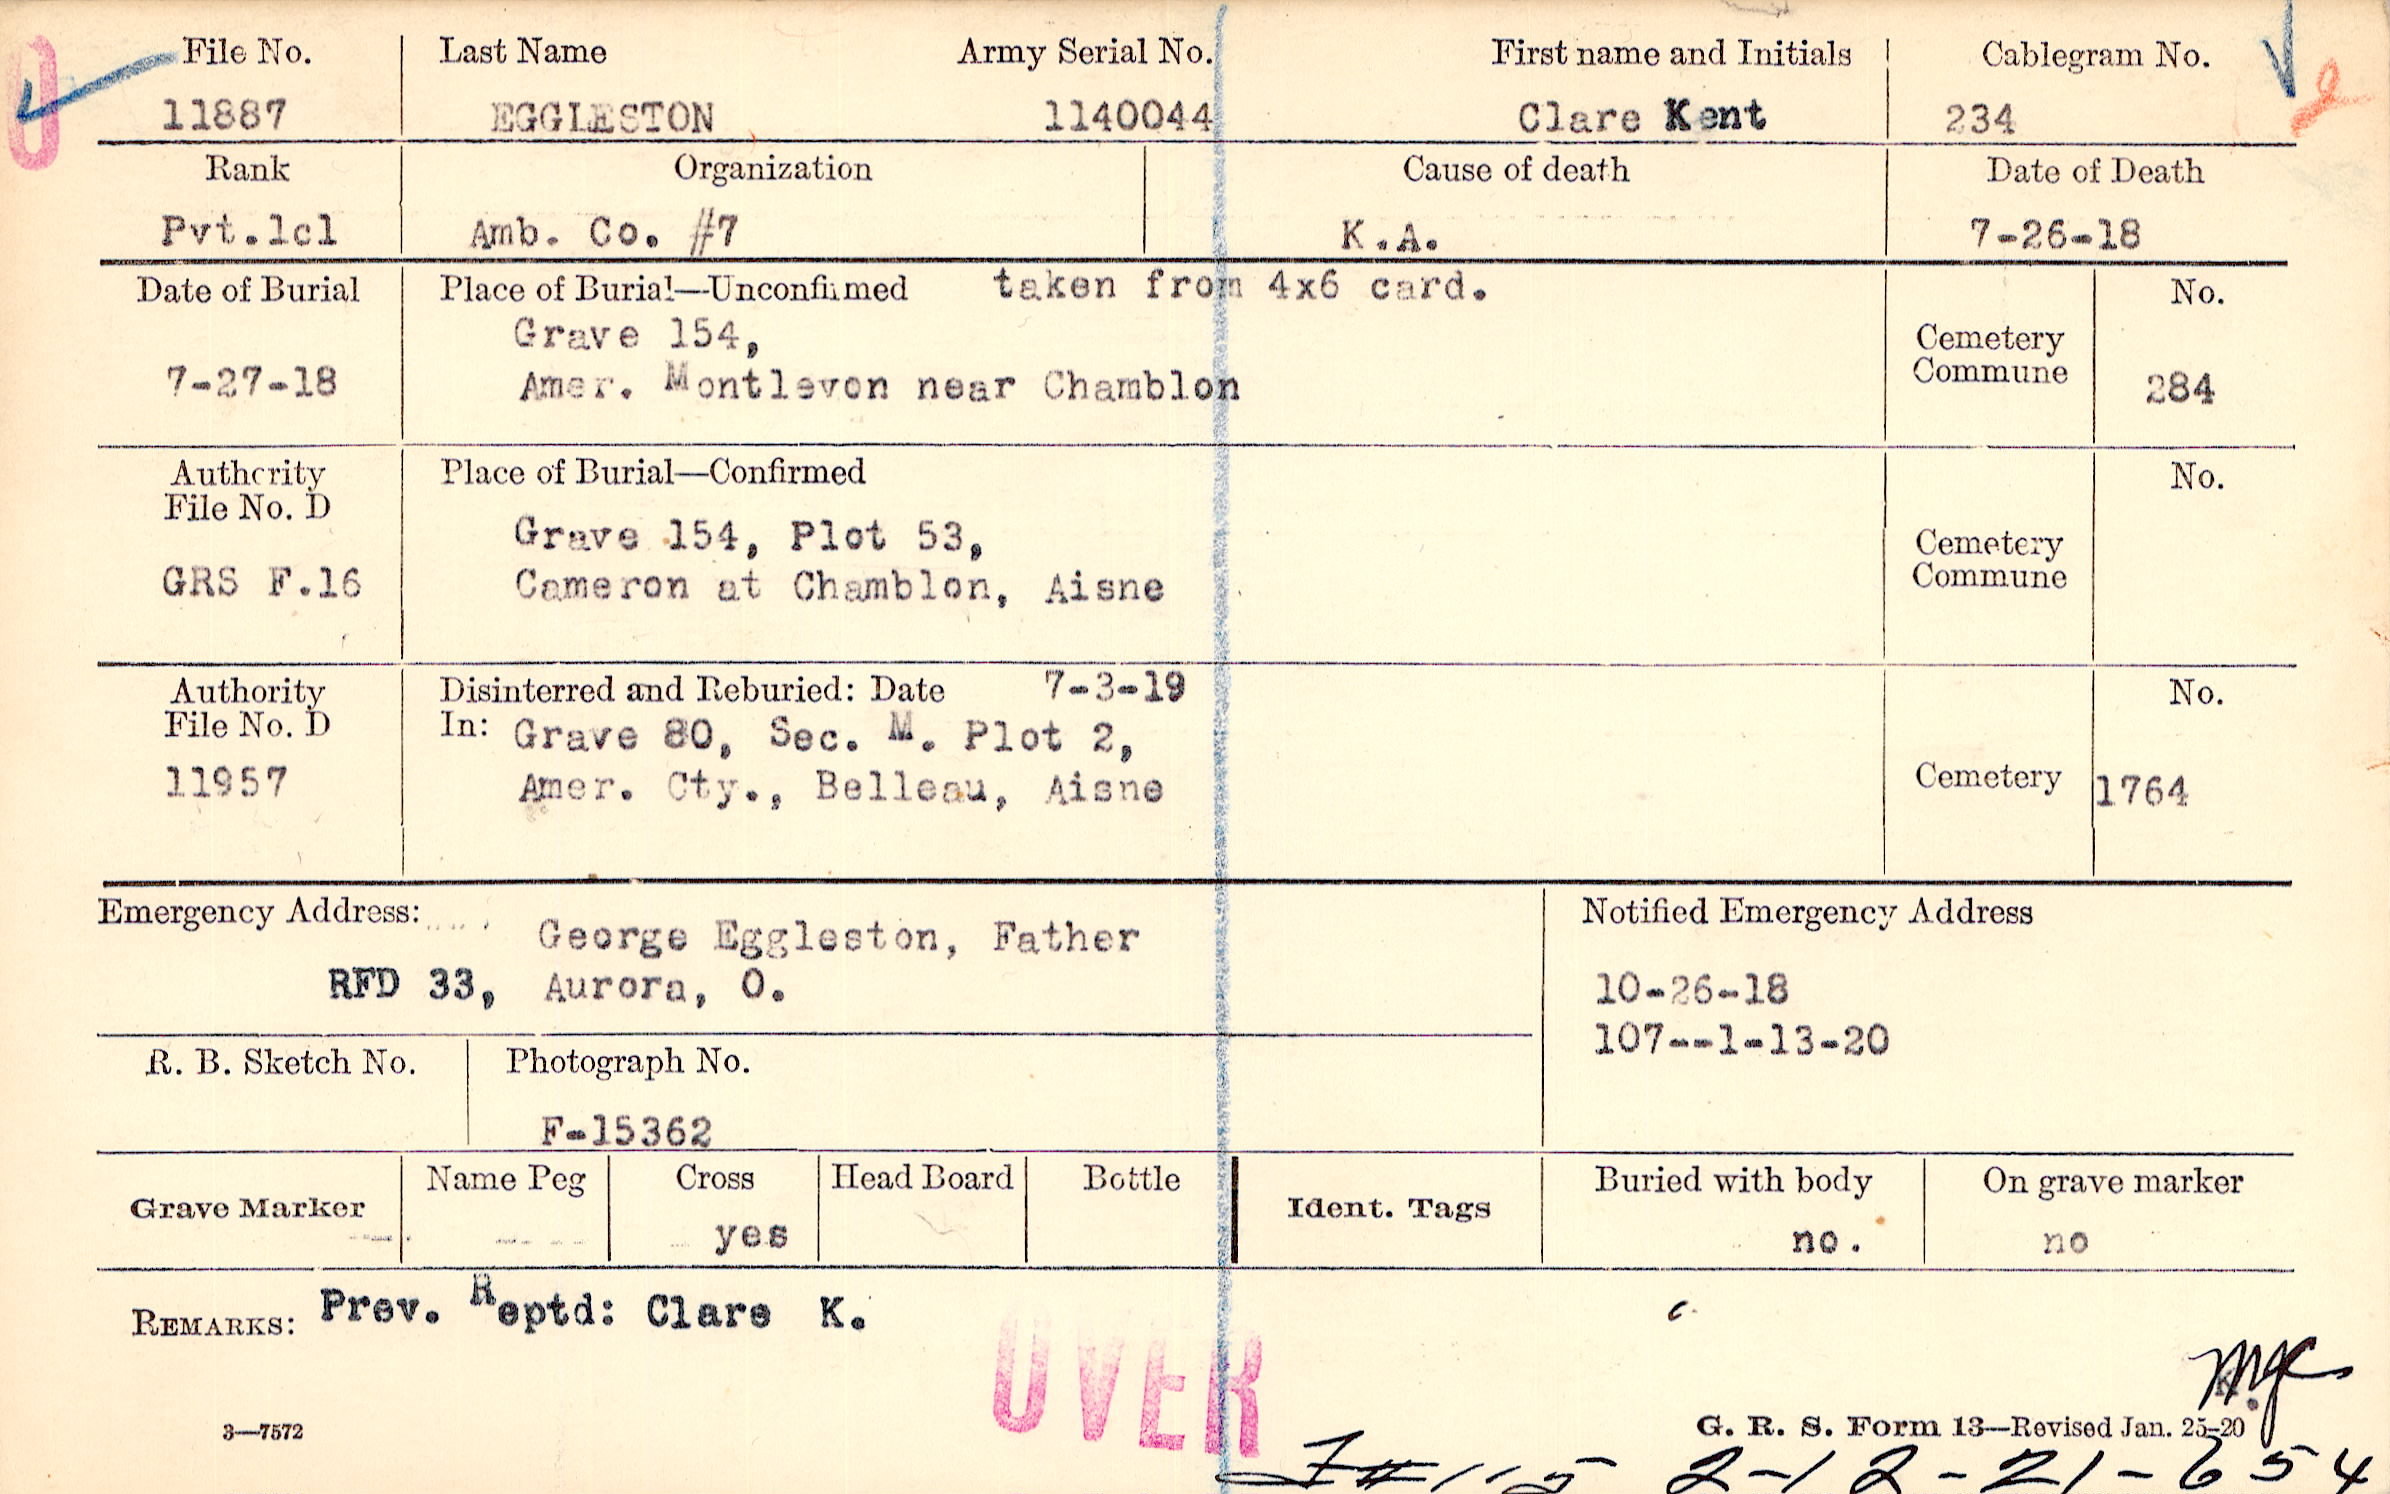 File No. Last Name Army Serial No. First name and Initials Cablegram No.
11887 EGGLESTON 1140044 Clare Kent 234
Rank Organization Cause of death Date of Death
Pvt.1cl Amb. Co. #7 K.A. 7-26-18
Date of Burial Place of Burial—Unconfirmed taken from 4x6 card. No.
Grave 154,
Cemetery
Commune
7-27-18 Amer. Montlevon near Chamblon 284
Authority Place of Burial—Confirmed No.
File No. D
Grave 154, Plot 53,
Cemetery
Commune
GRS F.16 Cameron at Chamblon, Aisne
Authority Disinterred and Reburied: Date 7-3-19 No.
File No. D In: Grave 80, Sec. M. Plot 2,
11957 Amer. Cty., Belleau, Aisne Cemetery 1764
Emergency Address: Notified Emergency Address
George Eggleston, Father
RFD 33, Aurora, O. 10-26-18
107--1-13-20
R. B. Sketch No. Photograph No.
F-15362
Grave Marker Name Peg Cross Head Board Bottle Ident. Tags Buried with body On grave marker
yes no. no
REMARKS: Prev. Reptd: Clare K.
OVER
3—7572 G. R. S. Form 13—Revised Jan. 25-20
2-12-21-654